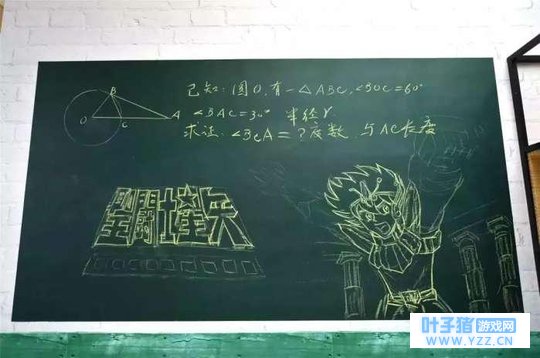 已知:圆O,有一△ABC,∠BOC=60°
∠BAC=30° 半径r
求证:∠BCA=?度数 与AC长度
B
O
C
A
聖闘士星矢
叶子猪游戏网
WWW.YZZ.CN